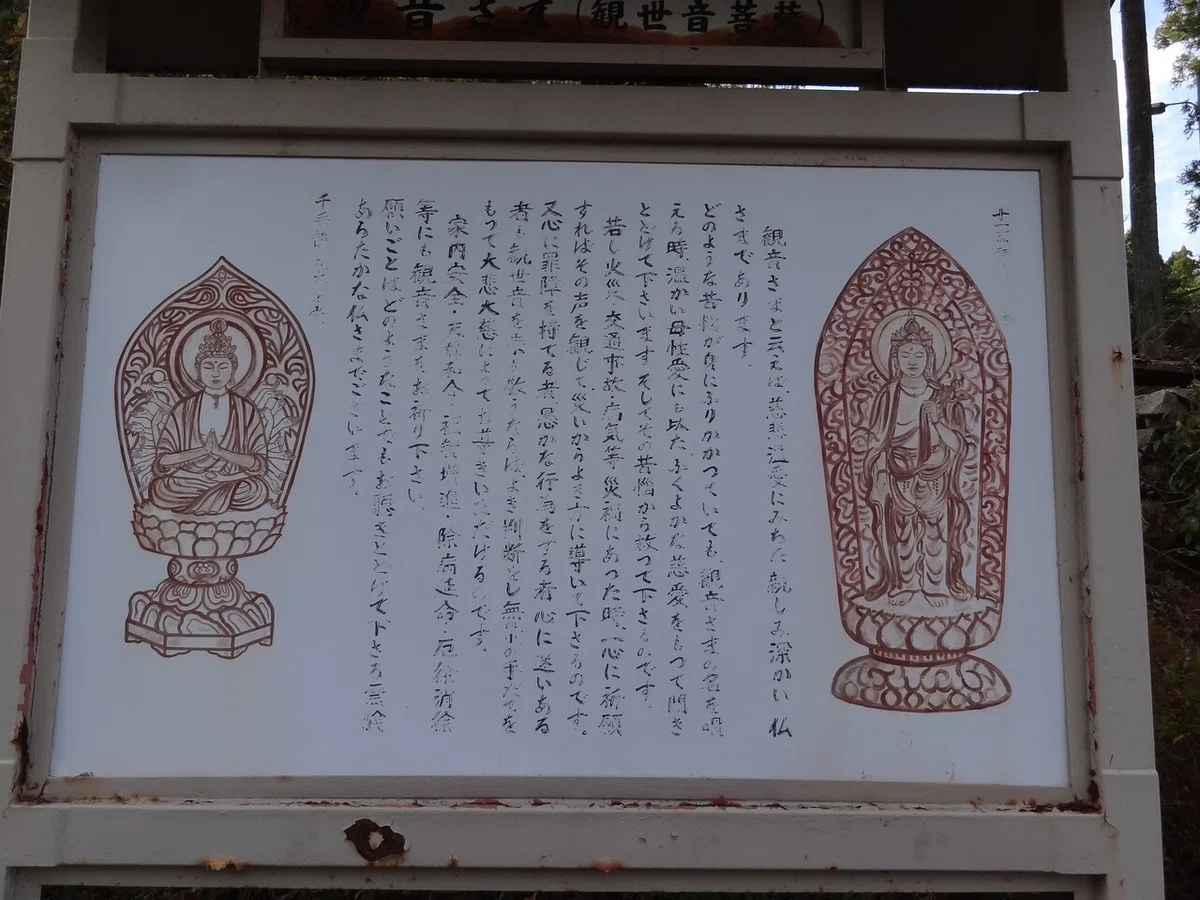 観音さま(観世音菩薩)
観音さまと云えば、慈悲深愛にみちた親しみ深かい仏
さまであります。
どのような苦悩が身にふりかかつていても、観音さまの名を唱
える時、温かい母性愛にも似たふくよかな慈愛をもつて聞き
とどけて下さいます そしてその苦悩から救つて下さるのです。
若し火災、交通事故、病気等災禍にあつた時、一心に祈願
すればその声を観じて、災いからよき方に導いて下さるのです。
又心に罪障を持てる者、愚かな行為をする者、心に迷いある
者も観世音を常に敬うならば、よき判断をし無事の手だてを
もつて大悲大慈によつてお導きいただけるのです。
家内安全・
増進・除病延命・厄除消除
等にも観音さまをお祈り下さい。
願いごとはどのようなことでもお聴きとどけて下さる霊験
あらたかな仏さまでございます。